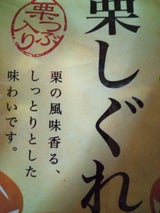 栗つぶ
入り
栗しぐれ
栗の風味香る、
しっとりとした
味わいです。